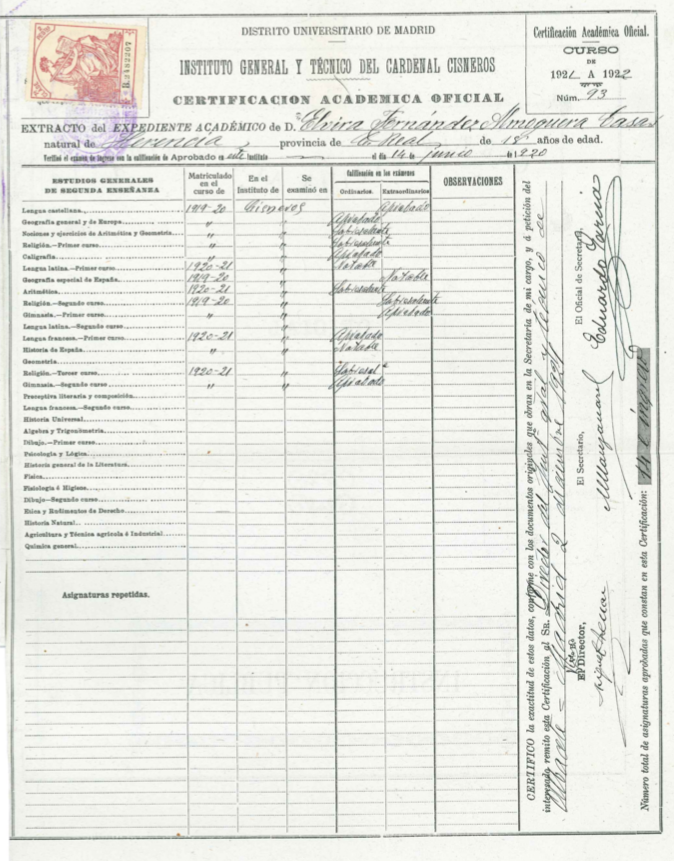 DISTRITO UNIVERSITARIO DE MADRID
INSTITUTO GENERAL Y TÉCNICO DEL CARDENAL CISNEROS
CERTIFICACION ACADEMICA OFICIAL
Certificación Académica Oficial.
CURSO
DE
1921 A 1922
Núm. 93
B.2482207
EXTRACTO del EXPEDIENTE ACADÉMICO de D. Elvira Fernández Almoguera Casas
natural de Herencia, provincia de C. Real de 18 años de edad.
Verificó el exámen de ingreso con la calificación de Aprobado en este Instituto el día 14 de junio de 1920
ESTUDIOS GENERALES DE SEGUNDA ENSEÑANZA
Matriculado en el curso de
En el Instituto de
Se examinó en
Calificación en los exámenes
Ordinarios. Extraordinarios
OBSERVACIONES
Lengua castellana 1919-20 Cisneros Aprobado
Geografía general y de Europa " " Aprobado
Nociones y ejercicios de Aritmética y Geometría " " Sobresaliente
Religión.—Primer curso " " Sobresaliente
Caligrafía " " Aprobado
Lengua latina.—Primer curso 1920-21 " Notable
Geografía especial de España 1919-20 " Notable
Aritmética 1920-21 " Sobresaliente
Religión.—Segundo curso 1919-20 " Sobresaliente
Gimnasia.—Primer curso " " Aprobado
Lengua latina.—Segundo curso "
Lengua francesa.—Primer curso 1920-21 " Aprobado
Historia de España " " Notable
Geometría
Religión.—Tercer curso 1920-21 " Sobresalte
Gimnasia.—Segundo curso " " Aprobado
Preceptiva literaria y composición
Lengua francesa.—Segundo curso
Historia Universal
Algebra y Trigonometría
Dibujo.—Primer curso
Psicología y Lógica
Historia general de la Literatura
Física
Fisiología é Higiene
Dibujo—Segundo curso
Etica y Rudimentos de Derecho
Historia Natural
Agricultura y Técnica agrícola é Industrial
Química general
Asignaturas repetidas.
CERTIFICO la exactitud de estos datos, conforme con los documentos originales que obran en la Secretaría de mi cargo, y á petición del
interesado remito esta Certificación al SR. Director del Instº gral y técnico de
Albacete - Madrid 2 diciembre 1921
Vº Bº
El Director,
El Secretario,
M Manzanares
El Oficial de Secretaría,
Eduardo García
Número total de asignaturas aprobadas que constan en esta Certificación: 14 é ingreso